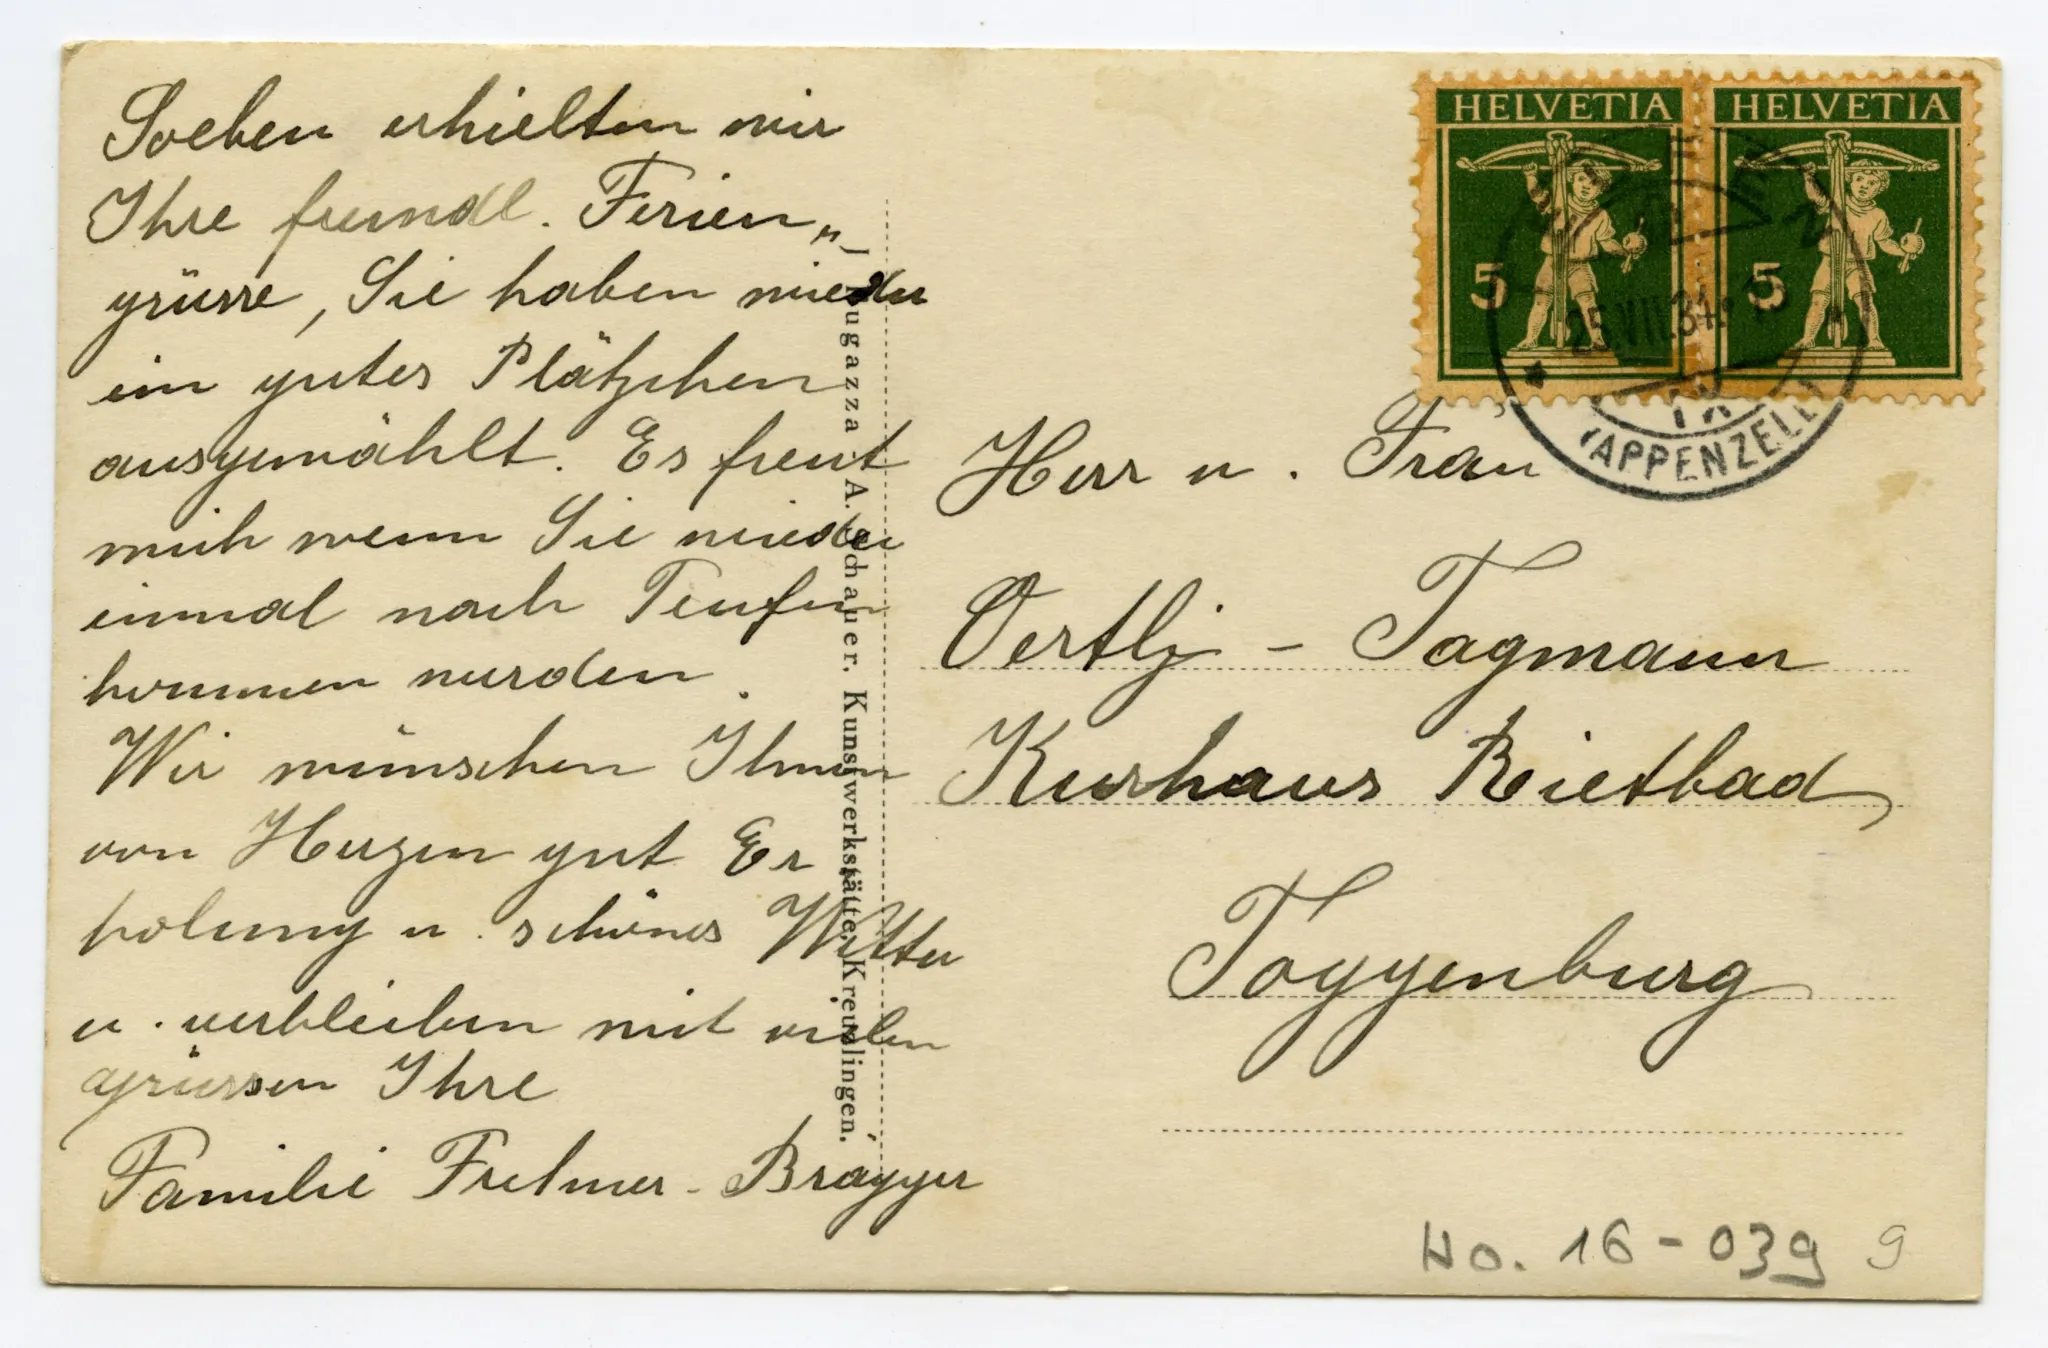 Soeben erhielten wir
Ihre freundl. Ferien„
grüsse, Sie haben wieder
ein gutes Plätzchen
ausgewählt. Es freut
mich wenn Sie wieder
einmal nach Teufen
kommen würden.
Wir wünschen Ihnen
von Herzen gut Er
holung u. schönes Wetter
u. verbleiben mit vielen
grüssen Ihre
Familie Frehner-Bragger
A. Schauer. Kunstwerkstätte, Kreuzlingen.
HELVETIA
5
HELVETIA
5
TEUFEN
25.VII.34
(APPENZELL)
Herr u. Frau
Oertly - Tagmann
Kurhaus Rietbad
Toggenburg
No. 16-039 9